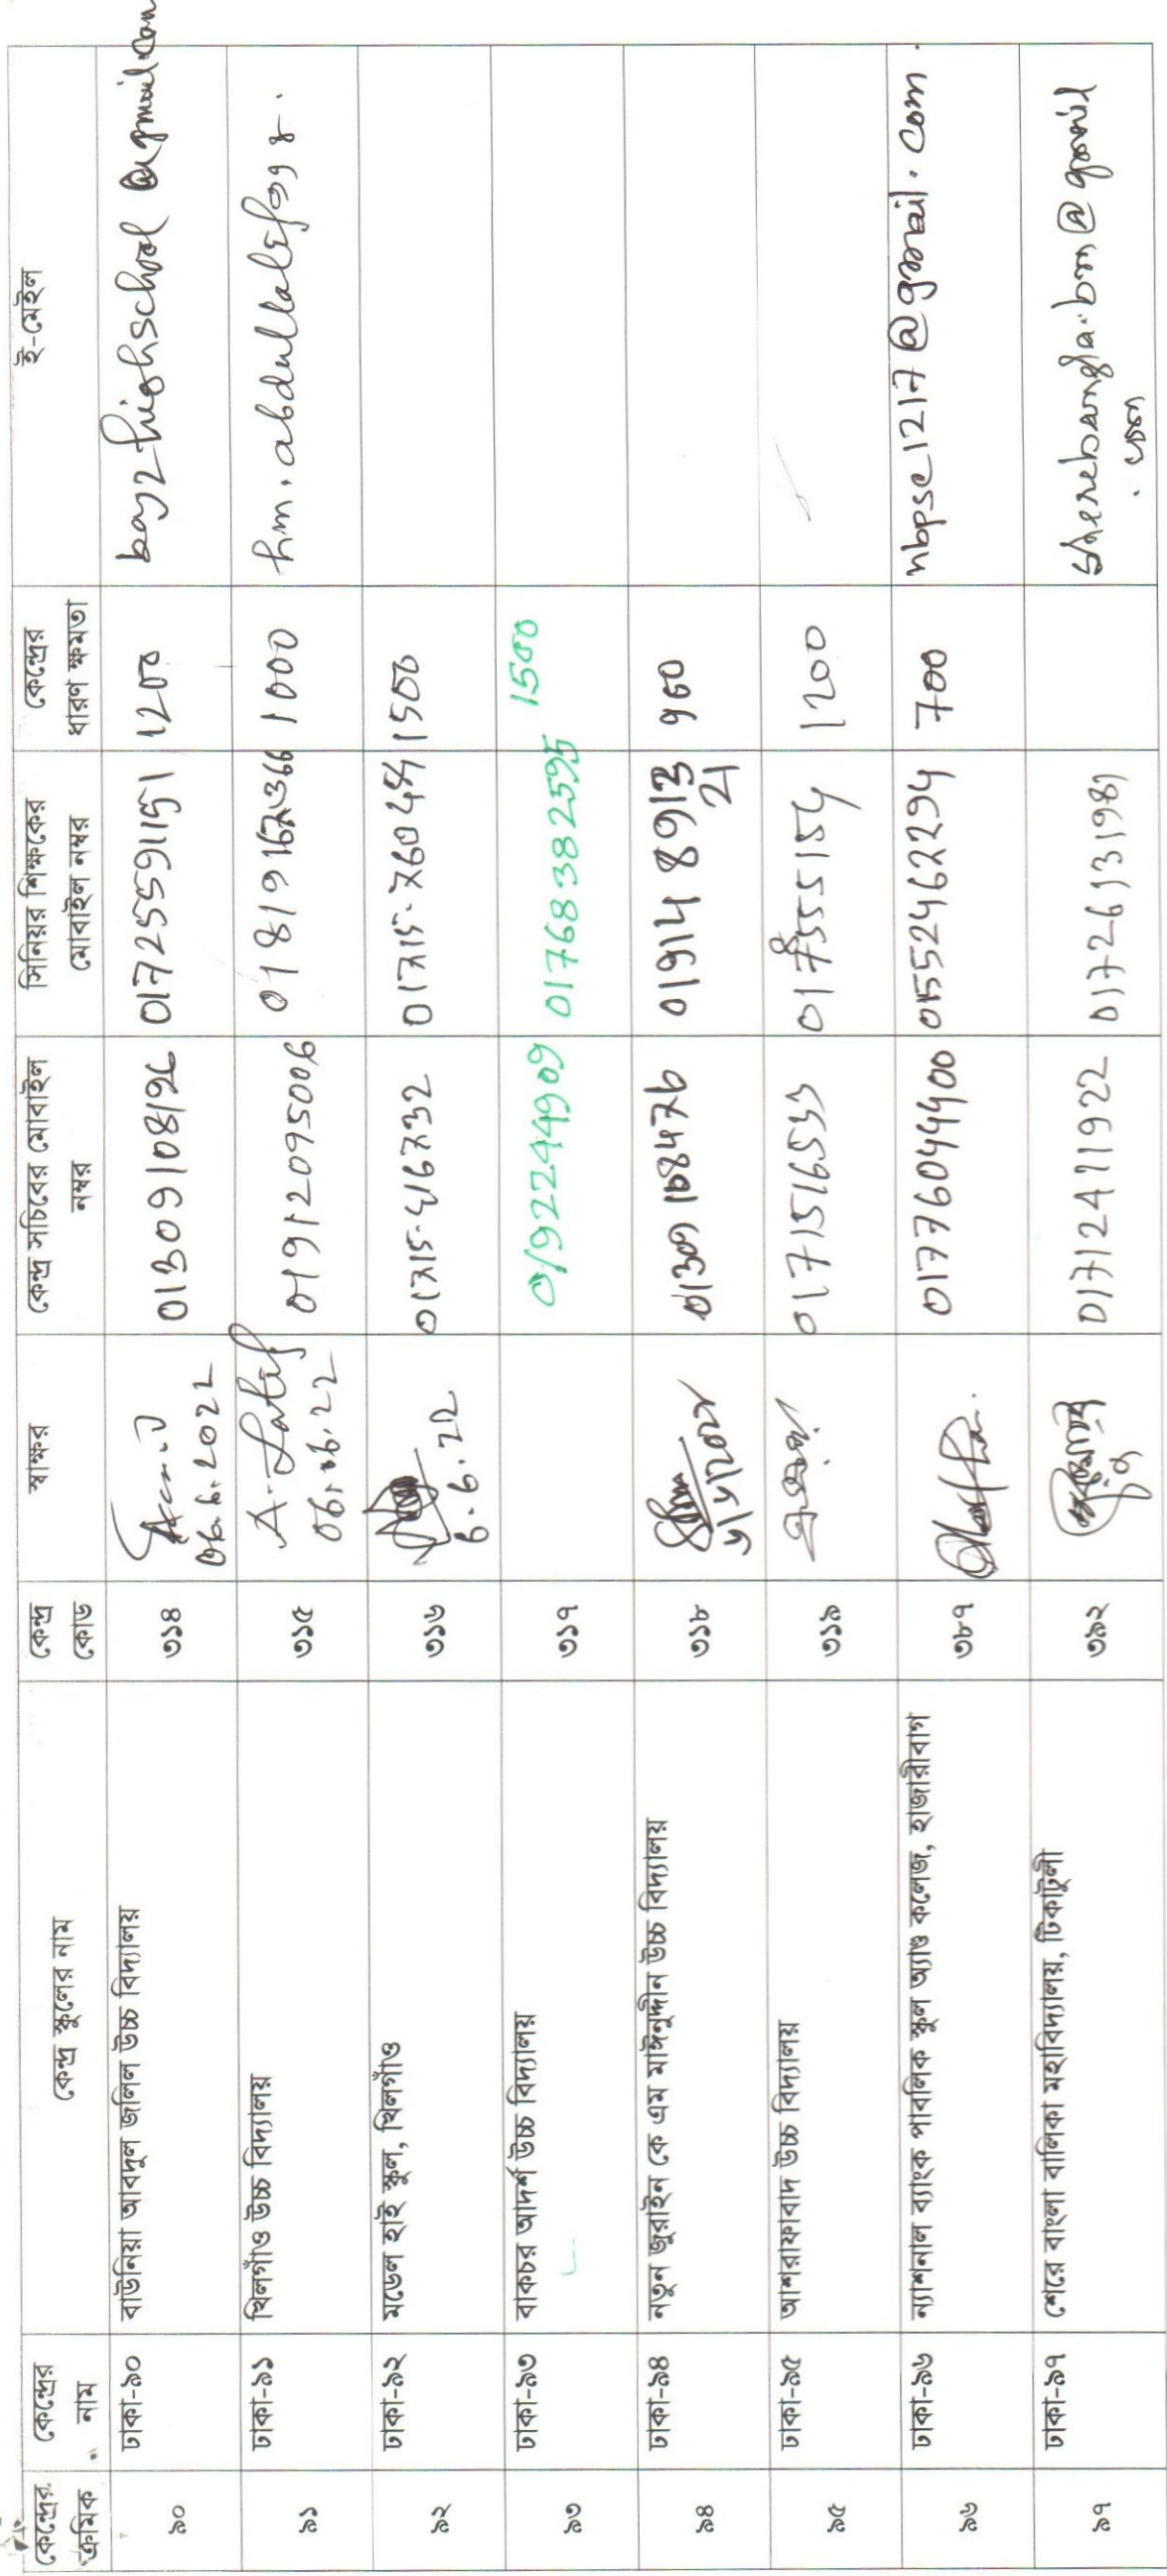 কেন্দ্রের ক্রমিক কেন্দ্রের নাম কেন্দ্র স্কুলের নাম কেন্দ্র কোড স্বাক্ষর কেন্দ্র সচিবের মোবাইল নম্বর সিনিয়র শিক্ষকের মোবাইল নম্বর কেন্দ্রের ধারণ ক্ষমতা ই-মেইল
৯০ ঢাকা-৯০ বাউনিয়া আবদুল জলিল উচ্চ বিদ্যালয় ৩১৪ 06.6.2022 01309108126 01725591151 1200
৯১ ঢাকা-৯১ খিলগাঁও উচ্চ বিদ্যালয় ৩১৫ A. Latif 06.06.22 01912095006 1000
৯২ ঢাকা-৯২ মডেল হাই স্কুল, খিলগাঁও ৩১৬ 6.6.22 1500
৯৩ ঢাকা-৯৩ বাকচর আদর্শ উচ্চ বিদ্যালয় ৩১৭ 01922444909 01768382595 1500
৯৪ ঢাকা-৯৪ নতুন জুরাইন কে এম মাঈনুদ্দীন উচ্চ বিদ্যালয় ৩১৮ 01309 108476 960
৯৫ ঢাকা-৯৫ আশরাফাবাদ উচ্চ বিদ্যালয় ৩১৯ 1200
৯৬ ঢাকা-৯৬ ন্যাশনাল ব্যাংক পাবলিক স্কুল অ্যাণ্ড কলেজ, হাজারীবাগ ৩৮৭ 01776044400 01552462294 700 nbpsc1217@gmail.com
৯৭ ঢাকা-৯৭ শেরে বাংলা বালিকা মহাবিদ্যালয়, টিকাটুলী ৩৯২ 01712471922 01726131987 sherebangla.bm@gmail
.com